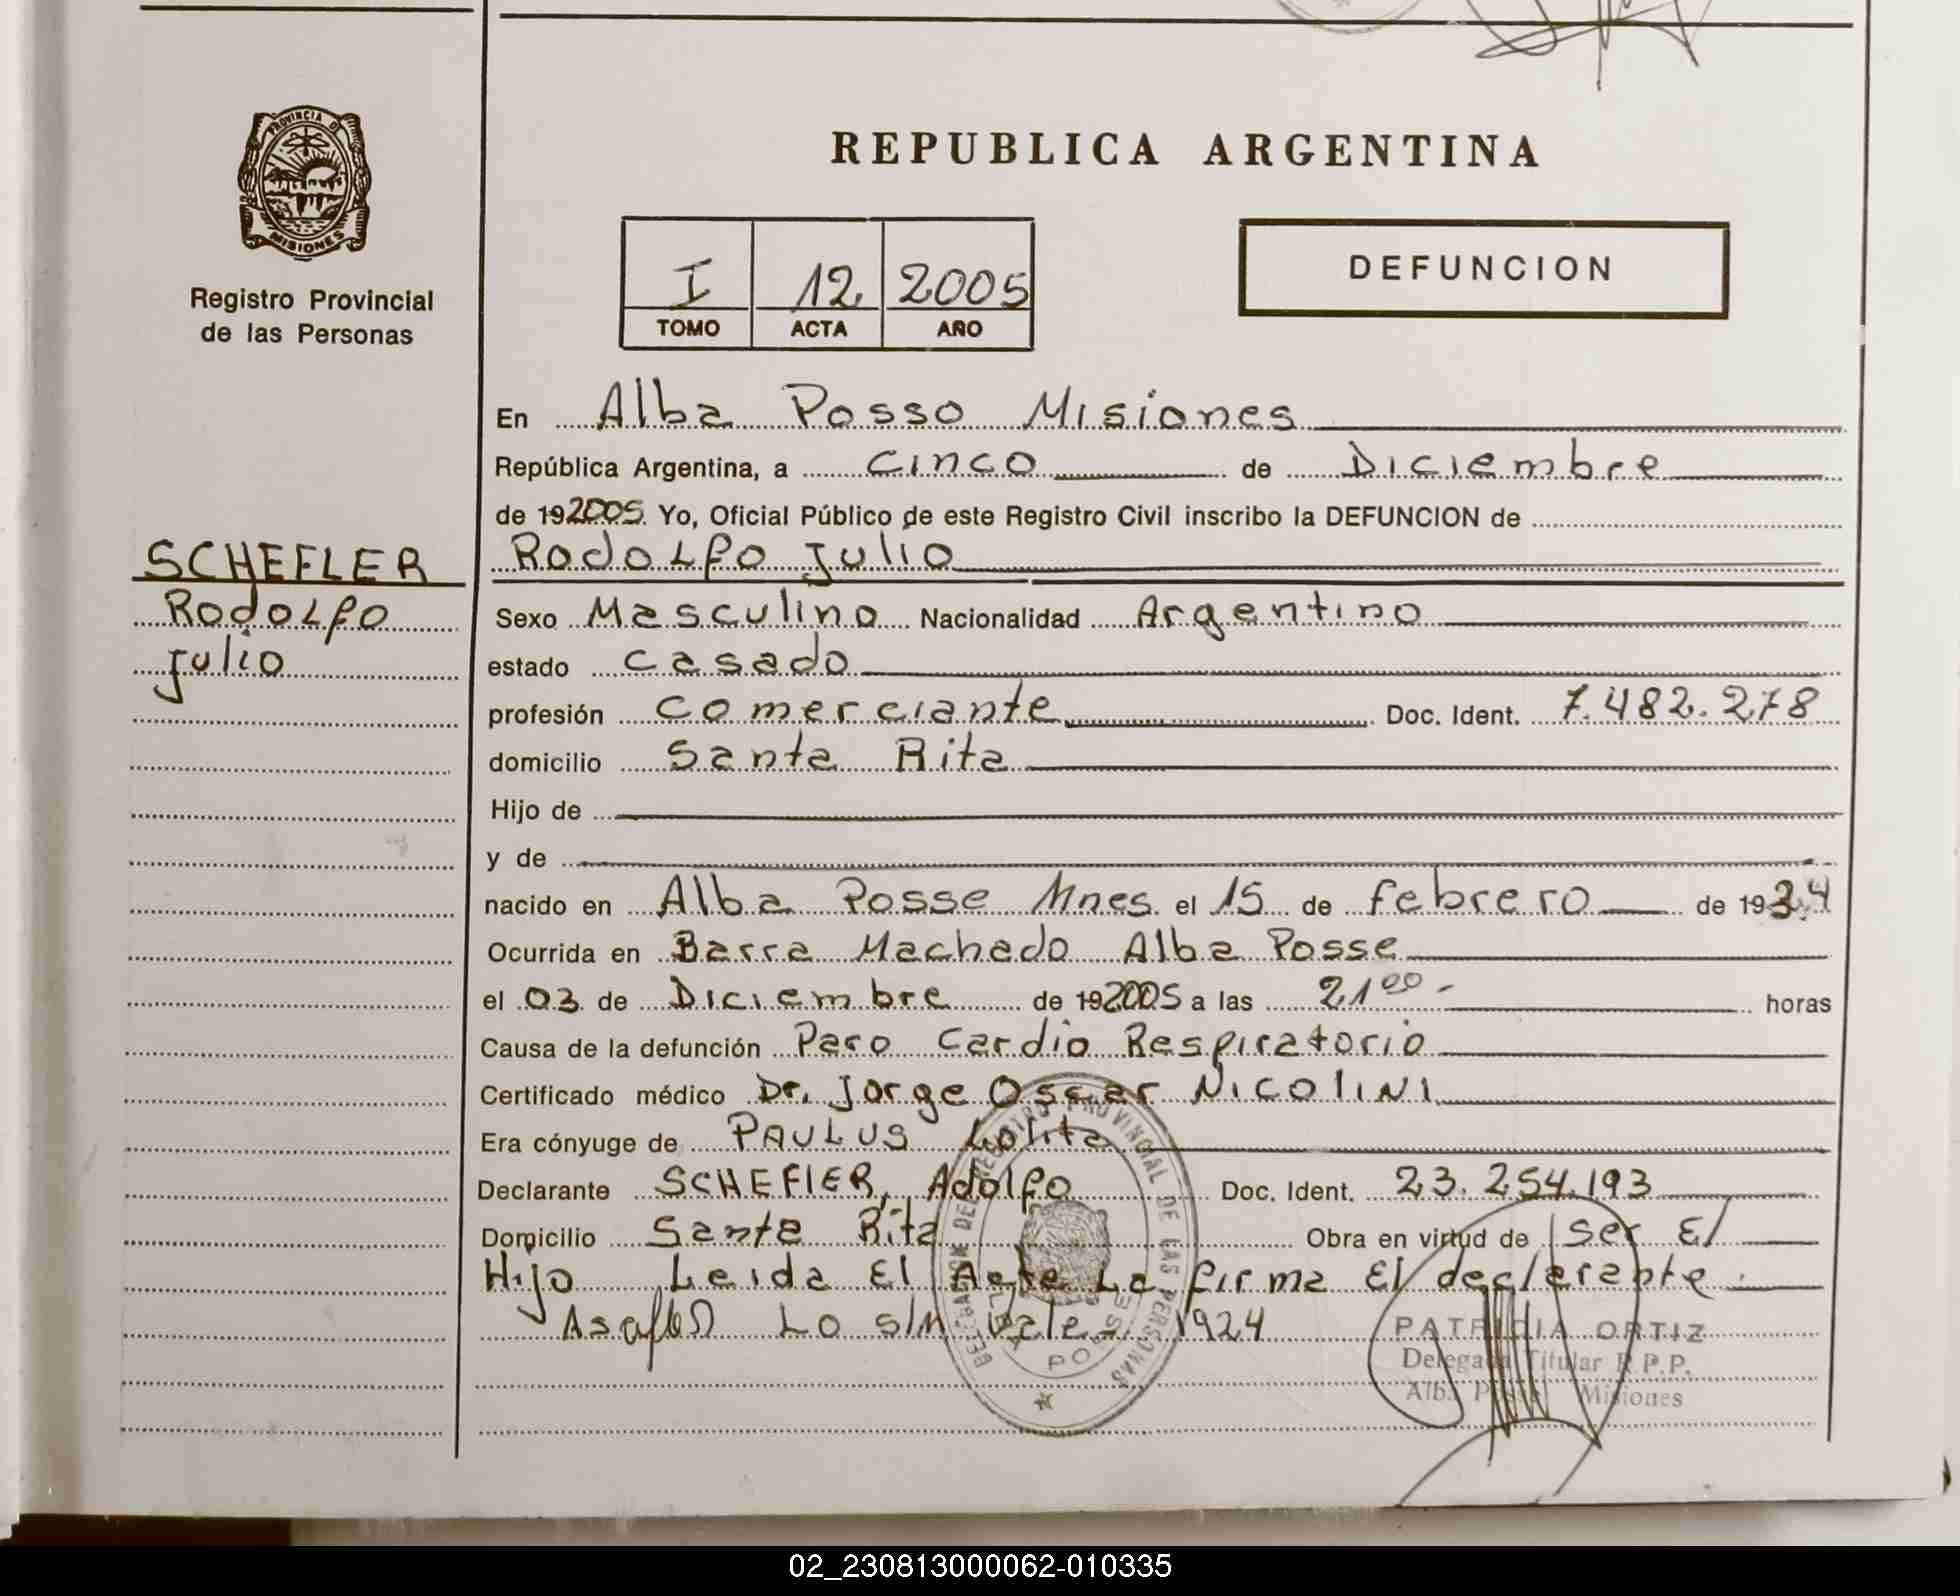 PROVINCIA DE
MISIONES
Registro Provincial
de las Personas
REPUBLICA ARGENTINA
I 12 2005
TOMO ACTA AÑO
DEFUNCION
En Alba Posso Misiones
República Argentina, a cinco de Diciembre
de 192005. Yo, Oficial Público de este Registro Civil inscribo la DEFUNCION de
SCHEFLER
Rodolfo Julio
Rodolfo
Julio
Sexo Masculino Nacionalidad Argentino
estado casado
profesión comerciante Doc. Ident. 7.482.278
domicilio Santa Rita
Hijo de
y de
nacido en Alba Posse Mnes. el 15 de febrero de 1934
Ocurrida en Barra Machado Alba Posse
el 03 de Diciembre de 192005 a las 21 00 - horas
Causa de la defunción Paro Cardio Respiratorio
Certificado médico Dr. Jorge Oscar NICOLINI
Era cónyuge de PAULUS Lolita
Declarante SCHEFLER, Adolfo Doc. Ident. 23.254.193
Domicilio Santa Rita Obra en virtud de ser El
Hijo Leida El Acta La firma El declarante
Lo S/R Vale 1924
DELEGACION DEL REGISTRO PROVINCIAL DE LAS PERSONAS
ALBA POSSE
PATRICIA ORTIZ
Delegada Titular R.P.P.
Alba Posse Misiones
02_230813000062-010335